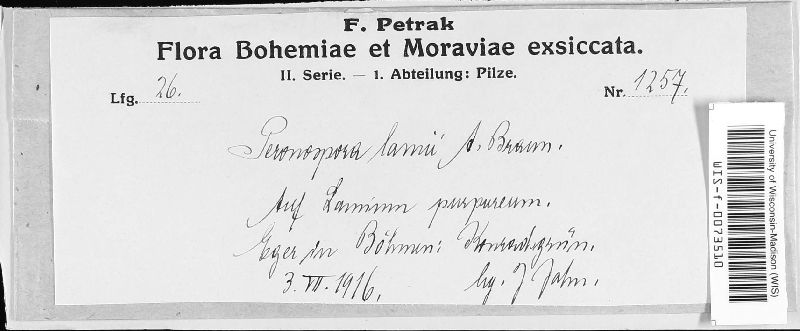 F. Petrak
Flora Bohemiae et Moraviae exsiccata.
II. Serie. — 1. Abteilung: Pilze.
Lfg. 26.
Nr. 1257.
Peronospora lamii A. Braun.
Auf Lamium purpureum.
Eger in Böhmen: Konradsgrün.
3. VII. 1916. lg. J. Jahn.
University of Wisconsin-Madison (WIS)
WIS-f-0073510